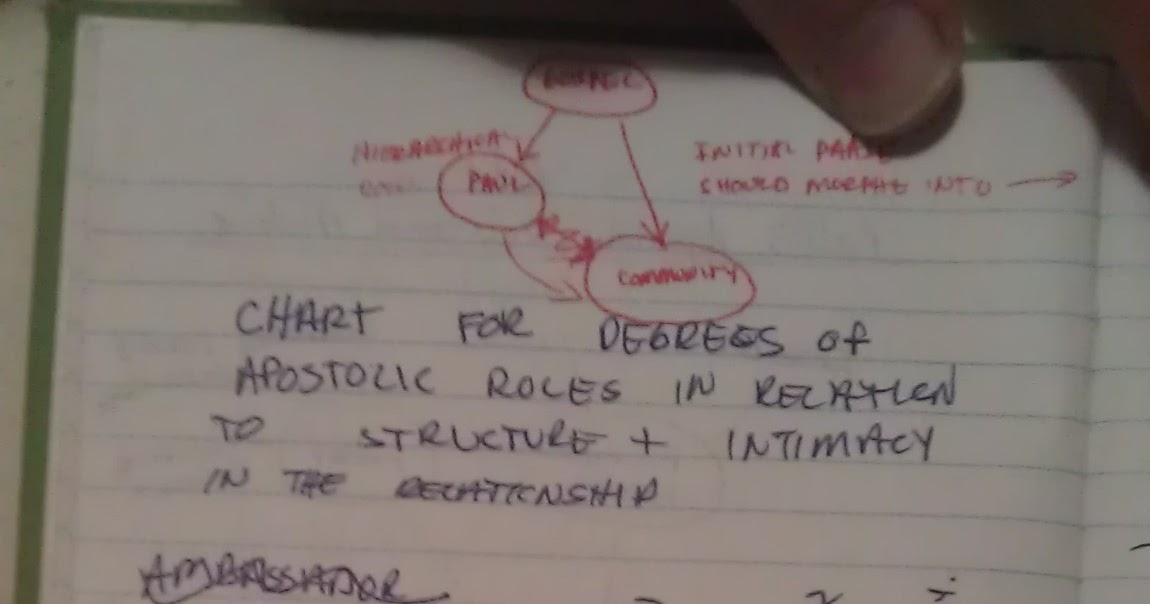 GOSPEL
HIERARCHICAL
INITIAL PHASE
PAUL
SHOULD MORPHE INTO
COMMUNITY
CHART FOR DEGREES of
APOSTOLIC ROLES IN RELATION
TO STRUCTURE + INTIMACY
IN THE RELATIONSHIP
AMBASSADOR